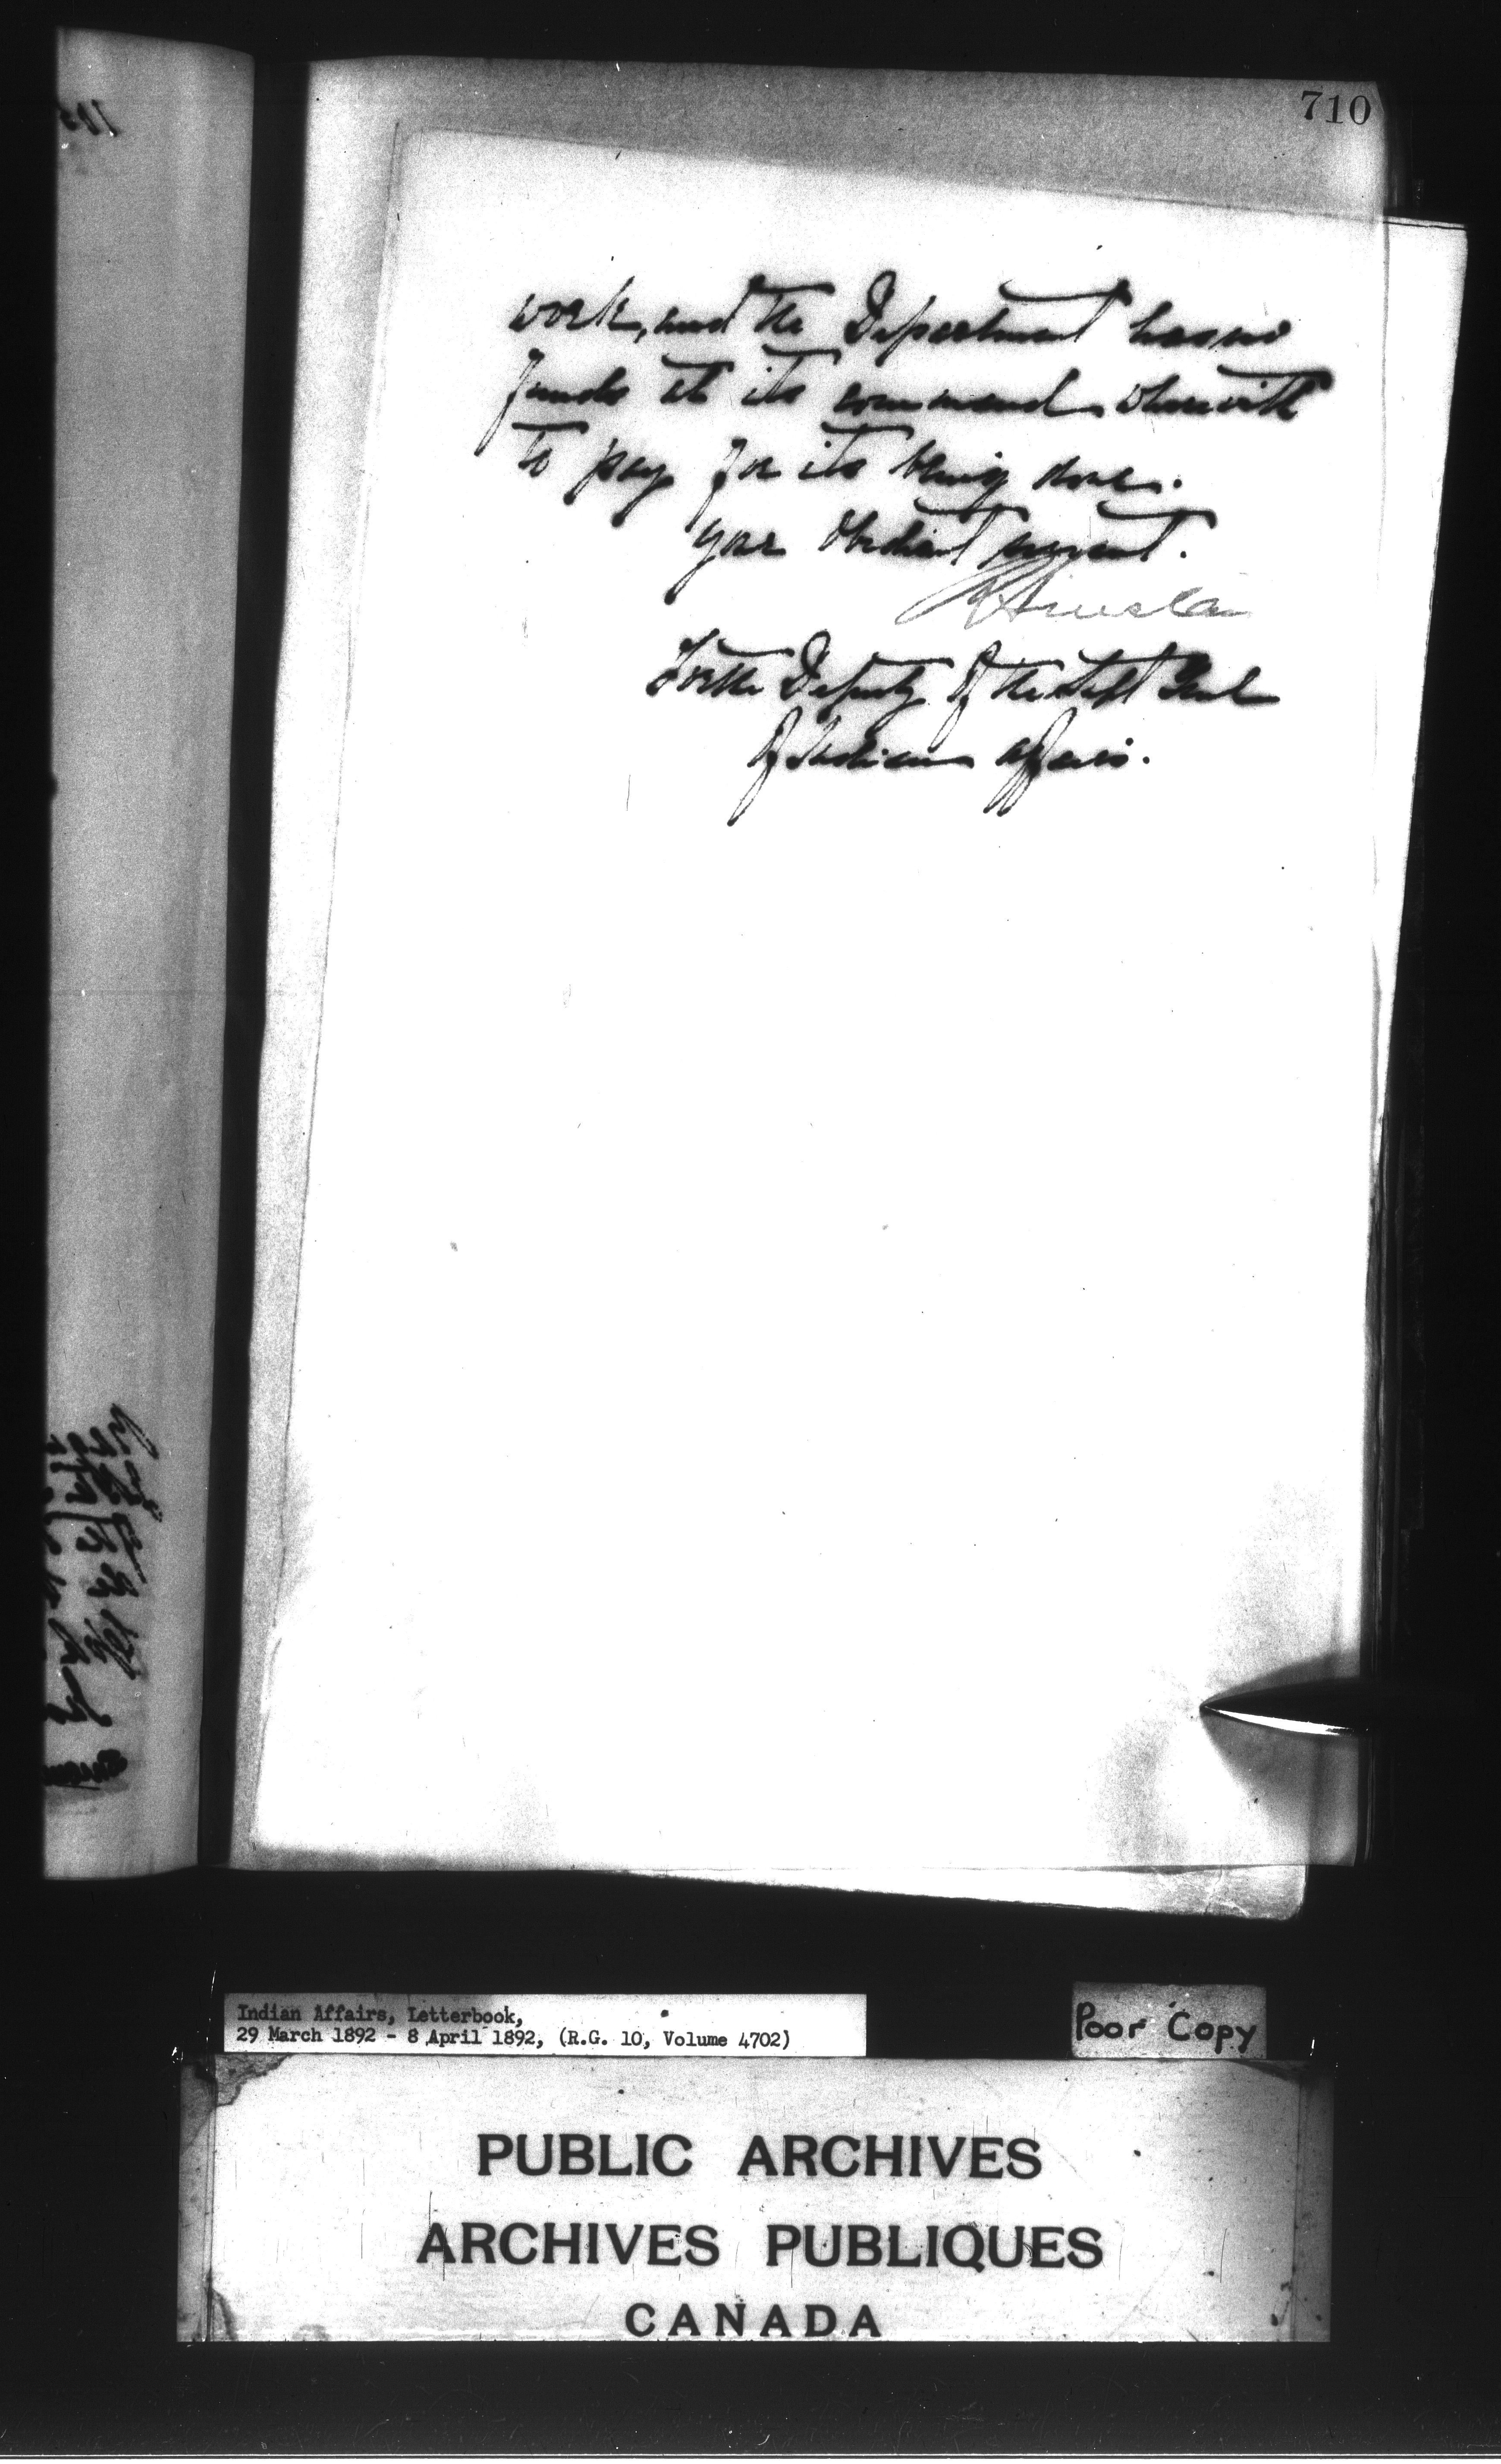 710
work, and the Department has no
funds at its command wherewith
to pay for its being done.
your Obedient servant.
R Sinclair
For the Deputy of the Supt Genl
of Indian affairs.
Indian Affairs, Letterbook,
29 March 1892 - 8 April 1892, (R.G. 10, Volume 4702)
Poor Copy
PUBLIC ARCHIVES
ARCHIVES PUBLIQUES
CANADA